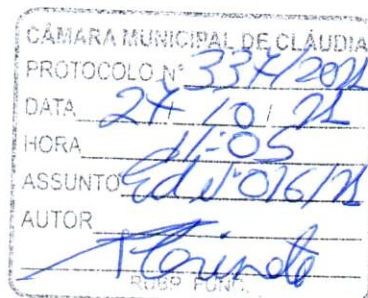 CÂMARA MUNICIPAL DE CLÁUDIA
PROTOCOLO Nº 334/2021
DATA 27/10/21
HORA 11:05
ASSUNTO 016/21
AUTOR
RUBR. FUNC.